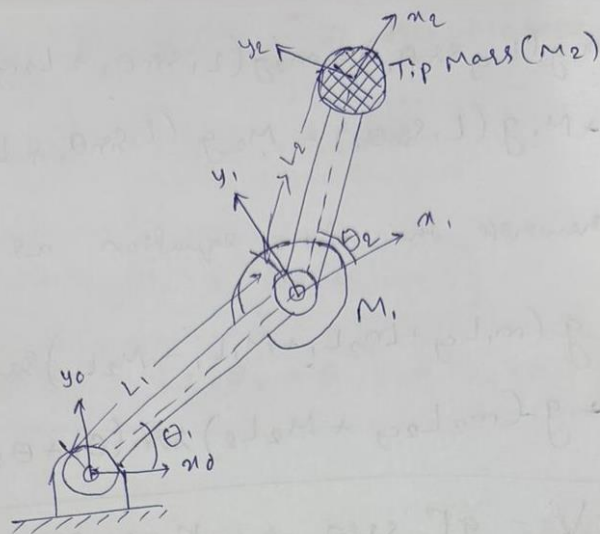 x2
y2
Tip Mass (M2)
L2
y1
x1
θ2
M1
L1
y0
θ1
x0